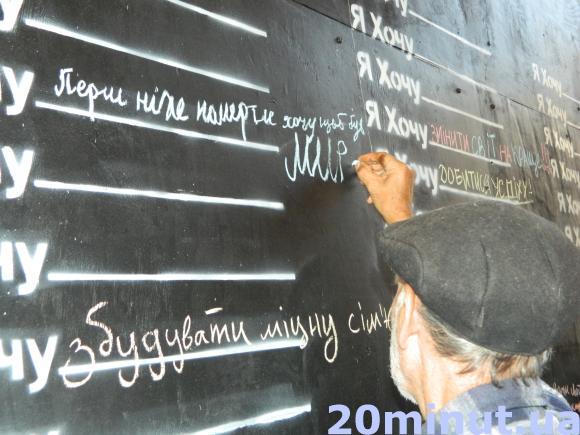 Я Хочу
Я Хочу
Я Хочу
Я Хочу
Я Хочу
Я Хочу
Я Хочу
Перш ніже померти хочу щоб був
МИР
Я Хочу ЗМІНИТИ СВІТ НА КРАЩЕ!!!
Хочу ДОБИТИСЯ УСПІХУ!
збудувати міцну сім'ю
20minut.ua